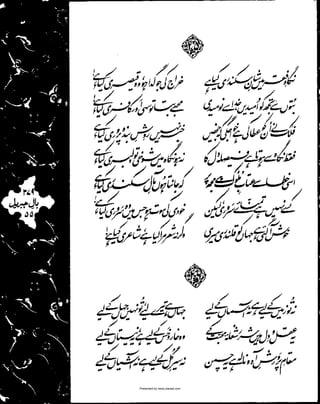 نگاہِ فقر میں شانِ سکندری کیا ہے
خراج کی جو گدا ہو وہ قیصری کیا ہے
بتوں سے تجھ کو امیدیں خدا سے نومیدی
مجھے بتا تو سہی اور کافری کیا ہے
فلک نے ان کو عطا کی ہے خواجگی کہ جنھیں
خبر نہیں روشِ بندہ پروری کیا ہے
فقط نگاہ سے ہوتا ہے فیصلہ دل کا
نہ ہو نگاہ میں شوخی تو دلبری کیا ہے
اسی خطا سے عتابِ ملوک ہے مجھ پر
کہ جانتا ہوں مآلِ سکندری کیا ہے
کسے نہیں ہے تمنائے سروری لیکن
خودی کی موت ہو جس میں وہ سروری کیا ہے
خوش آ گئی ہے جہاں کو قلندری میری
وگرنہ شعر مرا کیا ہے شاعری کیا ہے
نہ تو زمیں کے لیے ہے نہ آسماں کے لیے
جہاں ہے تیرے لیے تو نہیں جہاں کے لیے
یہ عقل و دل ہیں شرر شعلۂ محبت کے
وہ خار و خس کے لیے ہے یہ نیستاں کے لیے
مقامِ پرورشِ آہ و نالہ ہے یہ چمن
نہ سیرِ گل کے لیے ہے نہ آشیاں کے لیے
۳۴۹
بالِ جبریل
۵۵